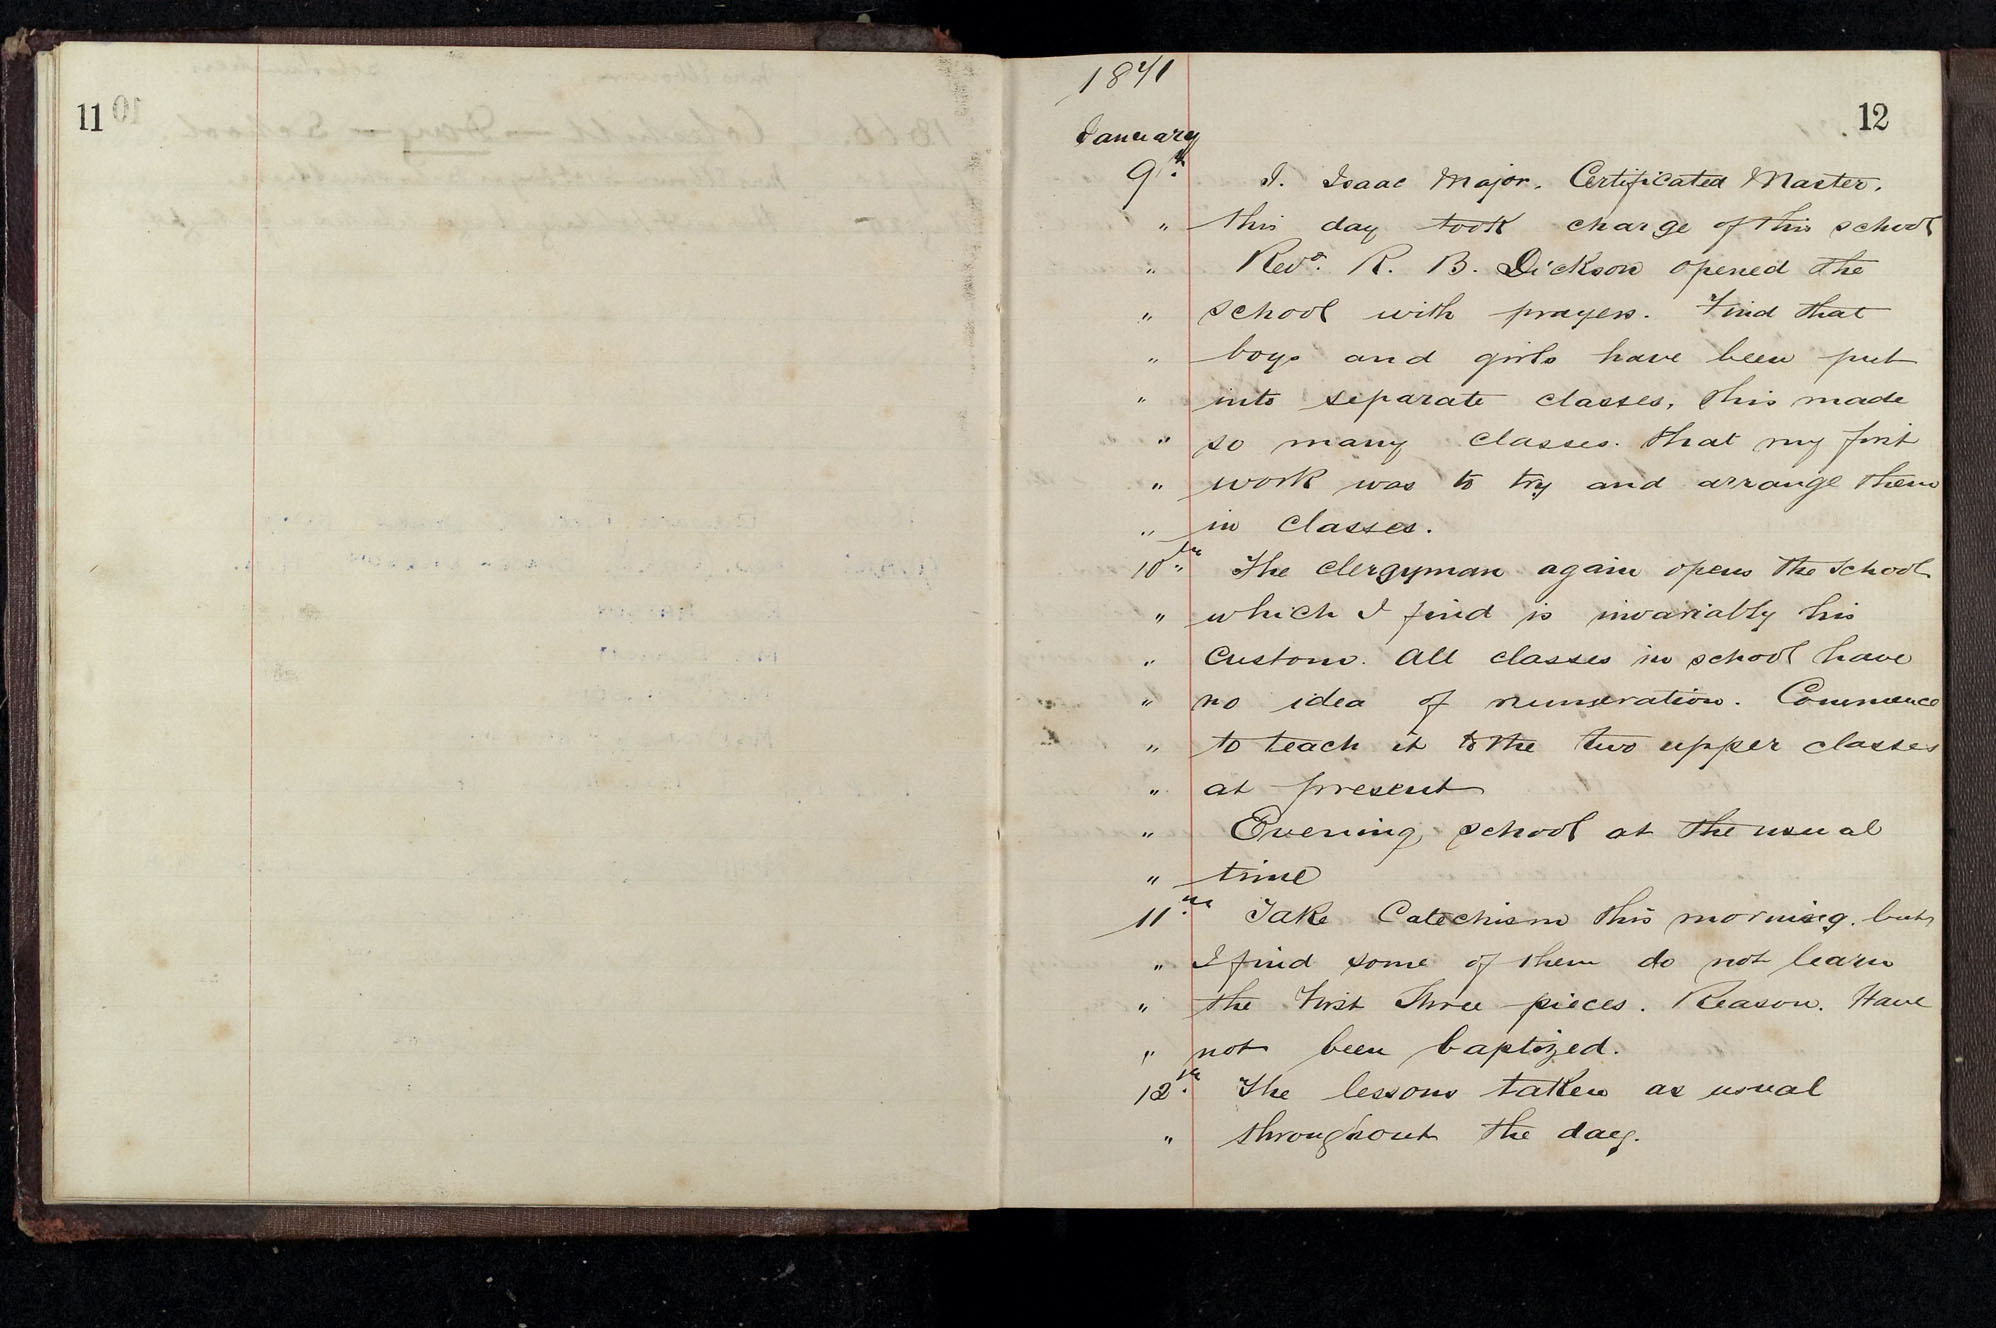 11
12
1871
January
9th. I. Isaac Major. Certificated Master.
" this day took charge of this school
" Revd. R. B. Dickson opened the
" school with prayers. Find that
" boys and girls have been put
" into separate classes, this made
" so many classes. that my first
" work was to try and arrange them
" in classes.
10th The clergyman again opens the school
" which I find is invariably his
" custom. All classes in school have
" no idea of numeration. Commence
" to teach it to the two upper classes
" at present
" Evening school at the usual
" time
11th. Take Catechism this morning. but
" I find some of them do not learn
" the first three pieces. Reason. Have
" not been baptized.
12th. The lessons taken as usual
" throughout the day.